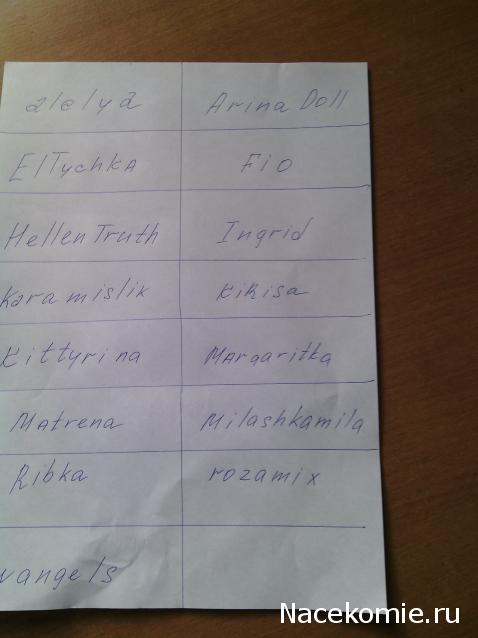 alelya Arina Doll
ElTychkA Fio
Hellen Truth Ingrid
Karamislik KiRisa
Kittyrina MArgaritka
MAtrena Milashkamila
Ribka rozamix
vangels
Nacekomie.ru